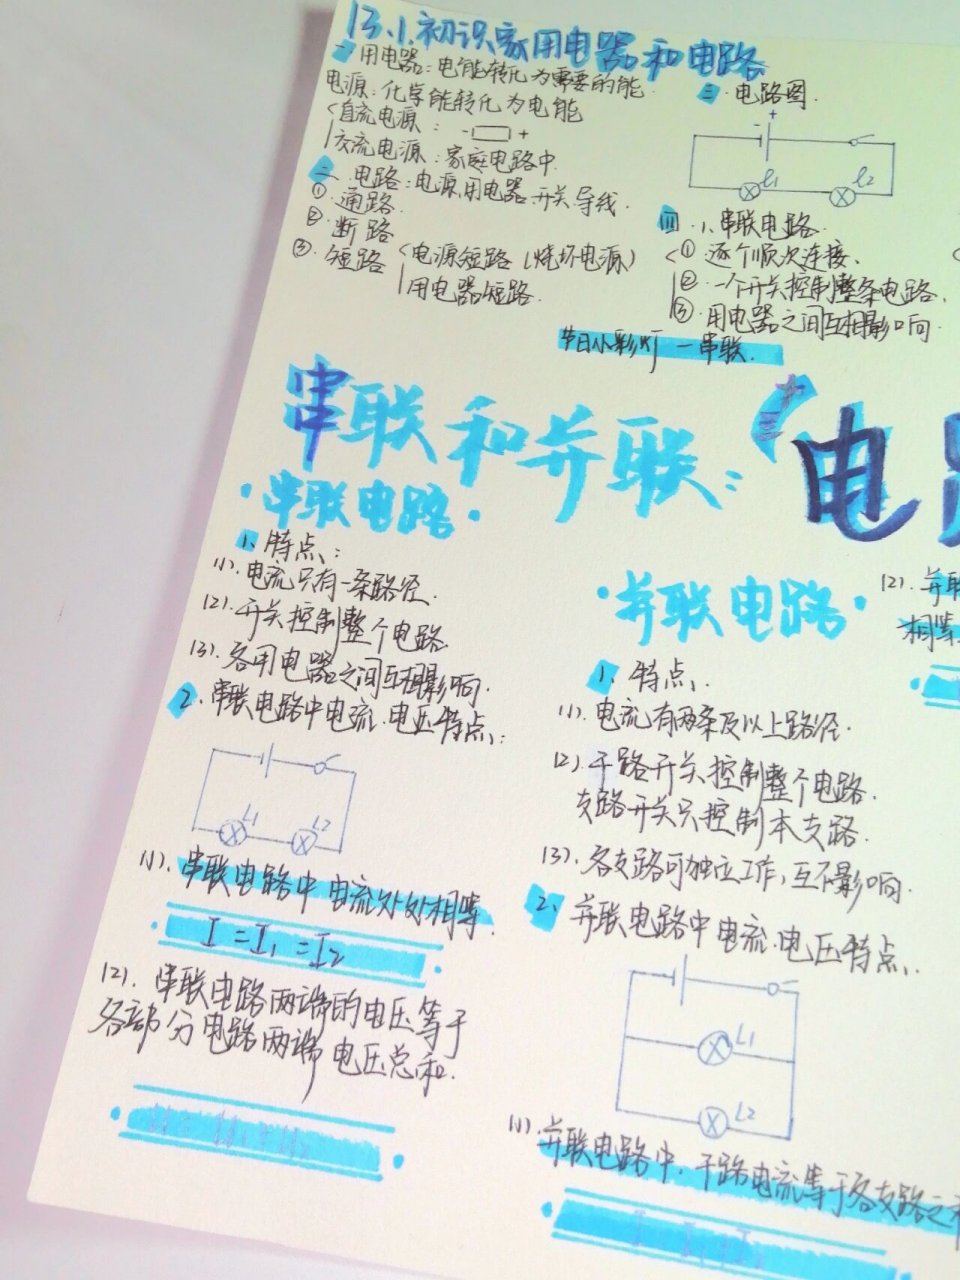 13.1.初识家用电器和电路
一 用电器：电能转化为需要的能
电源：化学能转化为电能
直流电源： - +
交流电源：家庭电路中
二、电路：电源 用电器 开关 导线.
① 通路.
② 断路
③ 短路 电源短路（烧坏电源）
用电器短路.
三.电路图.
- +
L1 L2
四.1.串联电路.
① 逐个顺次连接、
②.一个开关控制整条电路、
③.用电器之间互相影响.
节日小彩灯 — 串联.
串联和并联：
电
·串联电路·
1、特点：
(1).电流只有一条路径.
(2).开关控制整个电路.
(3).各用电器之间互相影响.
2.串联电路中电流.电压特点：
L1 L2
(1).串联电路中电流处处相等.
I=I1=I2
(2).串联电路两端的电压等于
各部分电路两端电压总和.
·并联电路·
1、特点.
(1).电流有两条及以上路径.
(2).干路开关控制整个电路.
支路开关只控制本支路.
(3).各支路可独立工作,互不影响.
2、并联电路中电流.电压特点.
L1
L2
(1).并联电路中.干路电流等于各支路之
(2).并联
相等